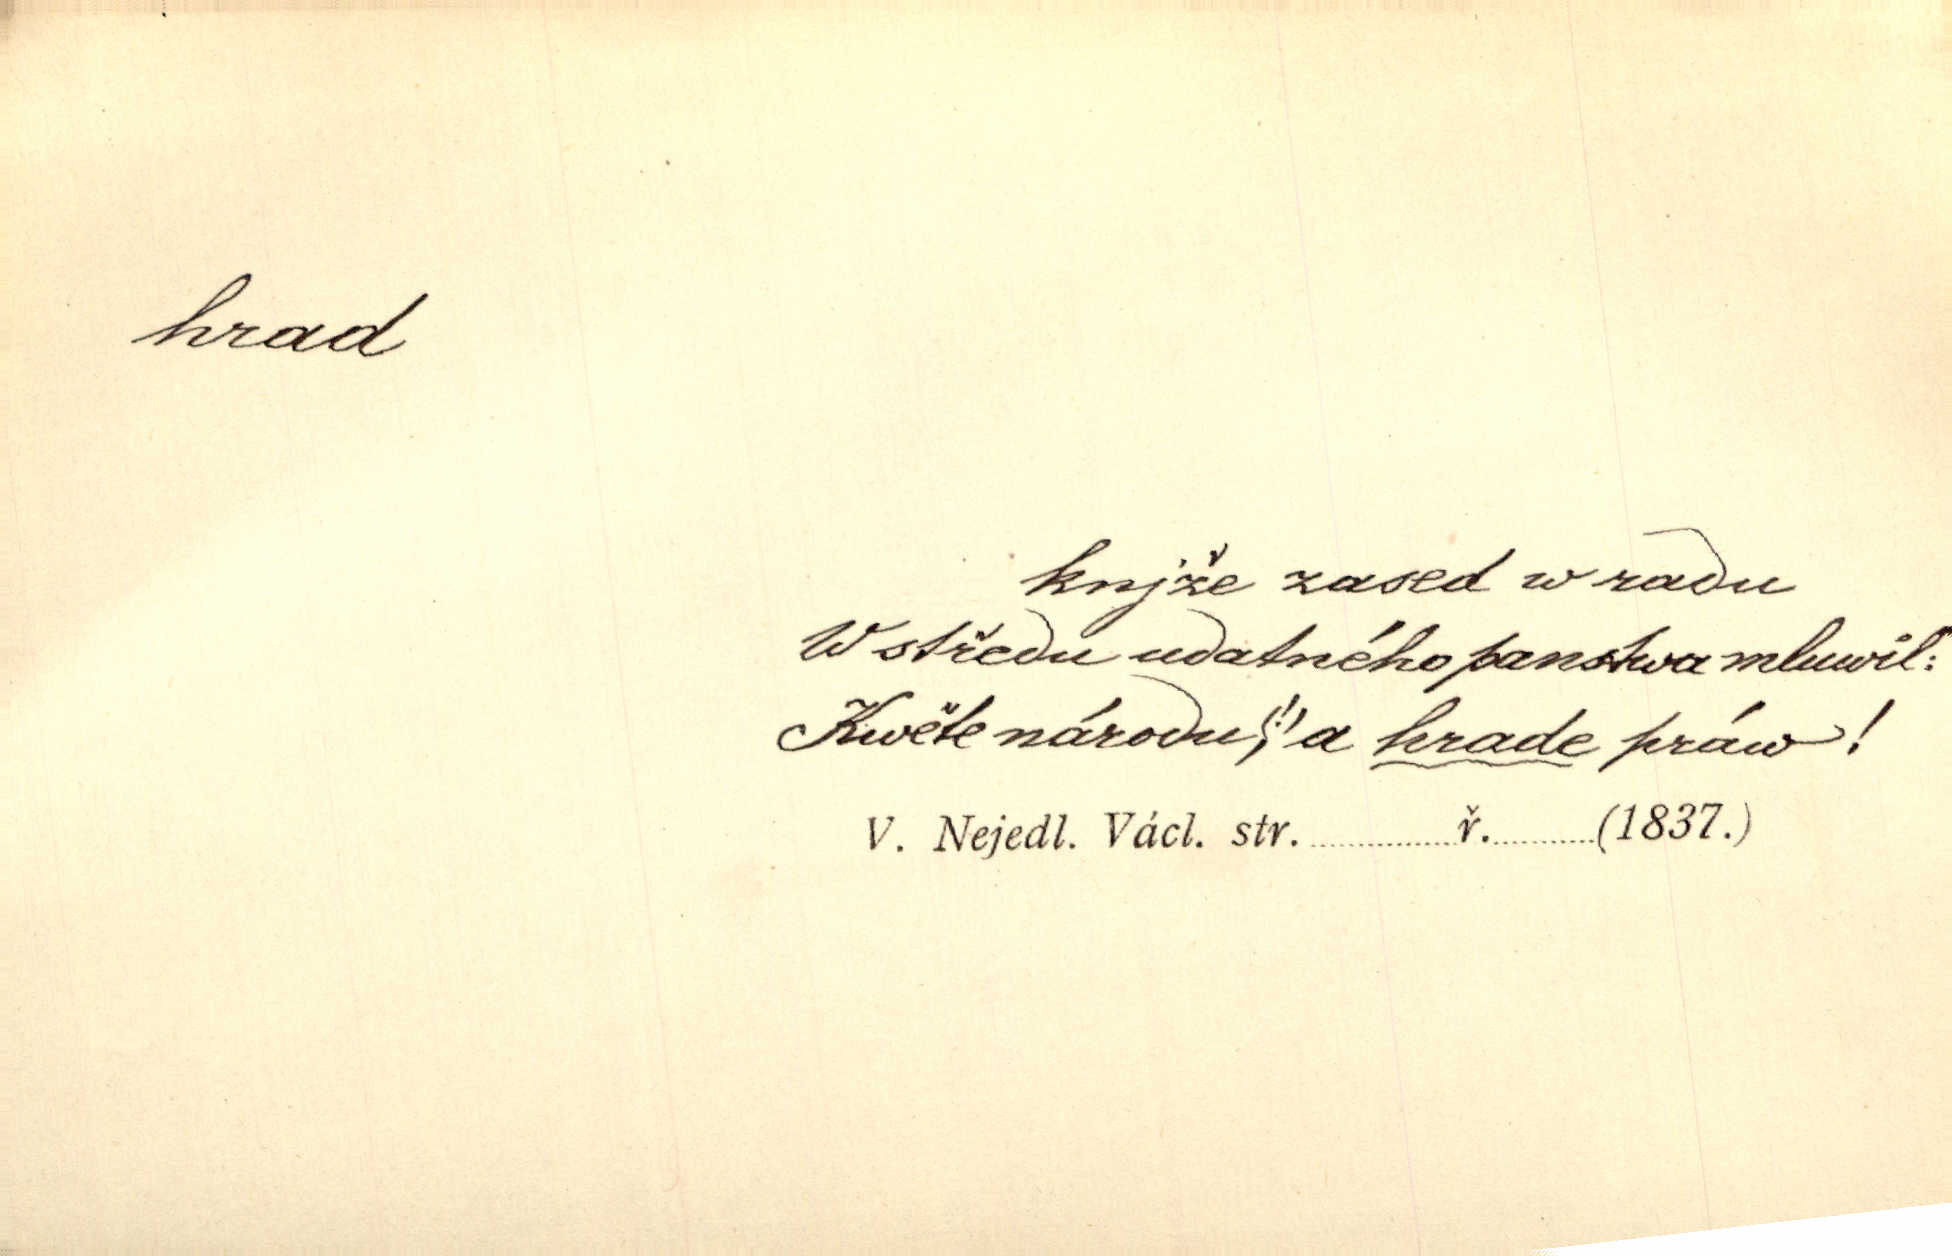 hrad
knjže zased w radu
W středu udatného panstwa mluwil:
Kwěte národu,(!) a hrade práw!
V. Nejedl. Václ. str. ............... ř. ............ (1837.)